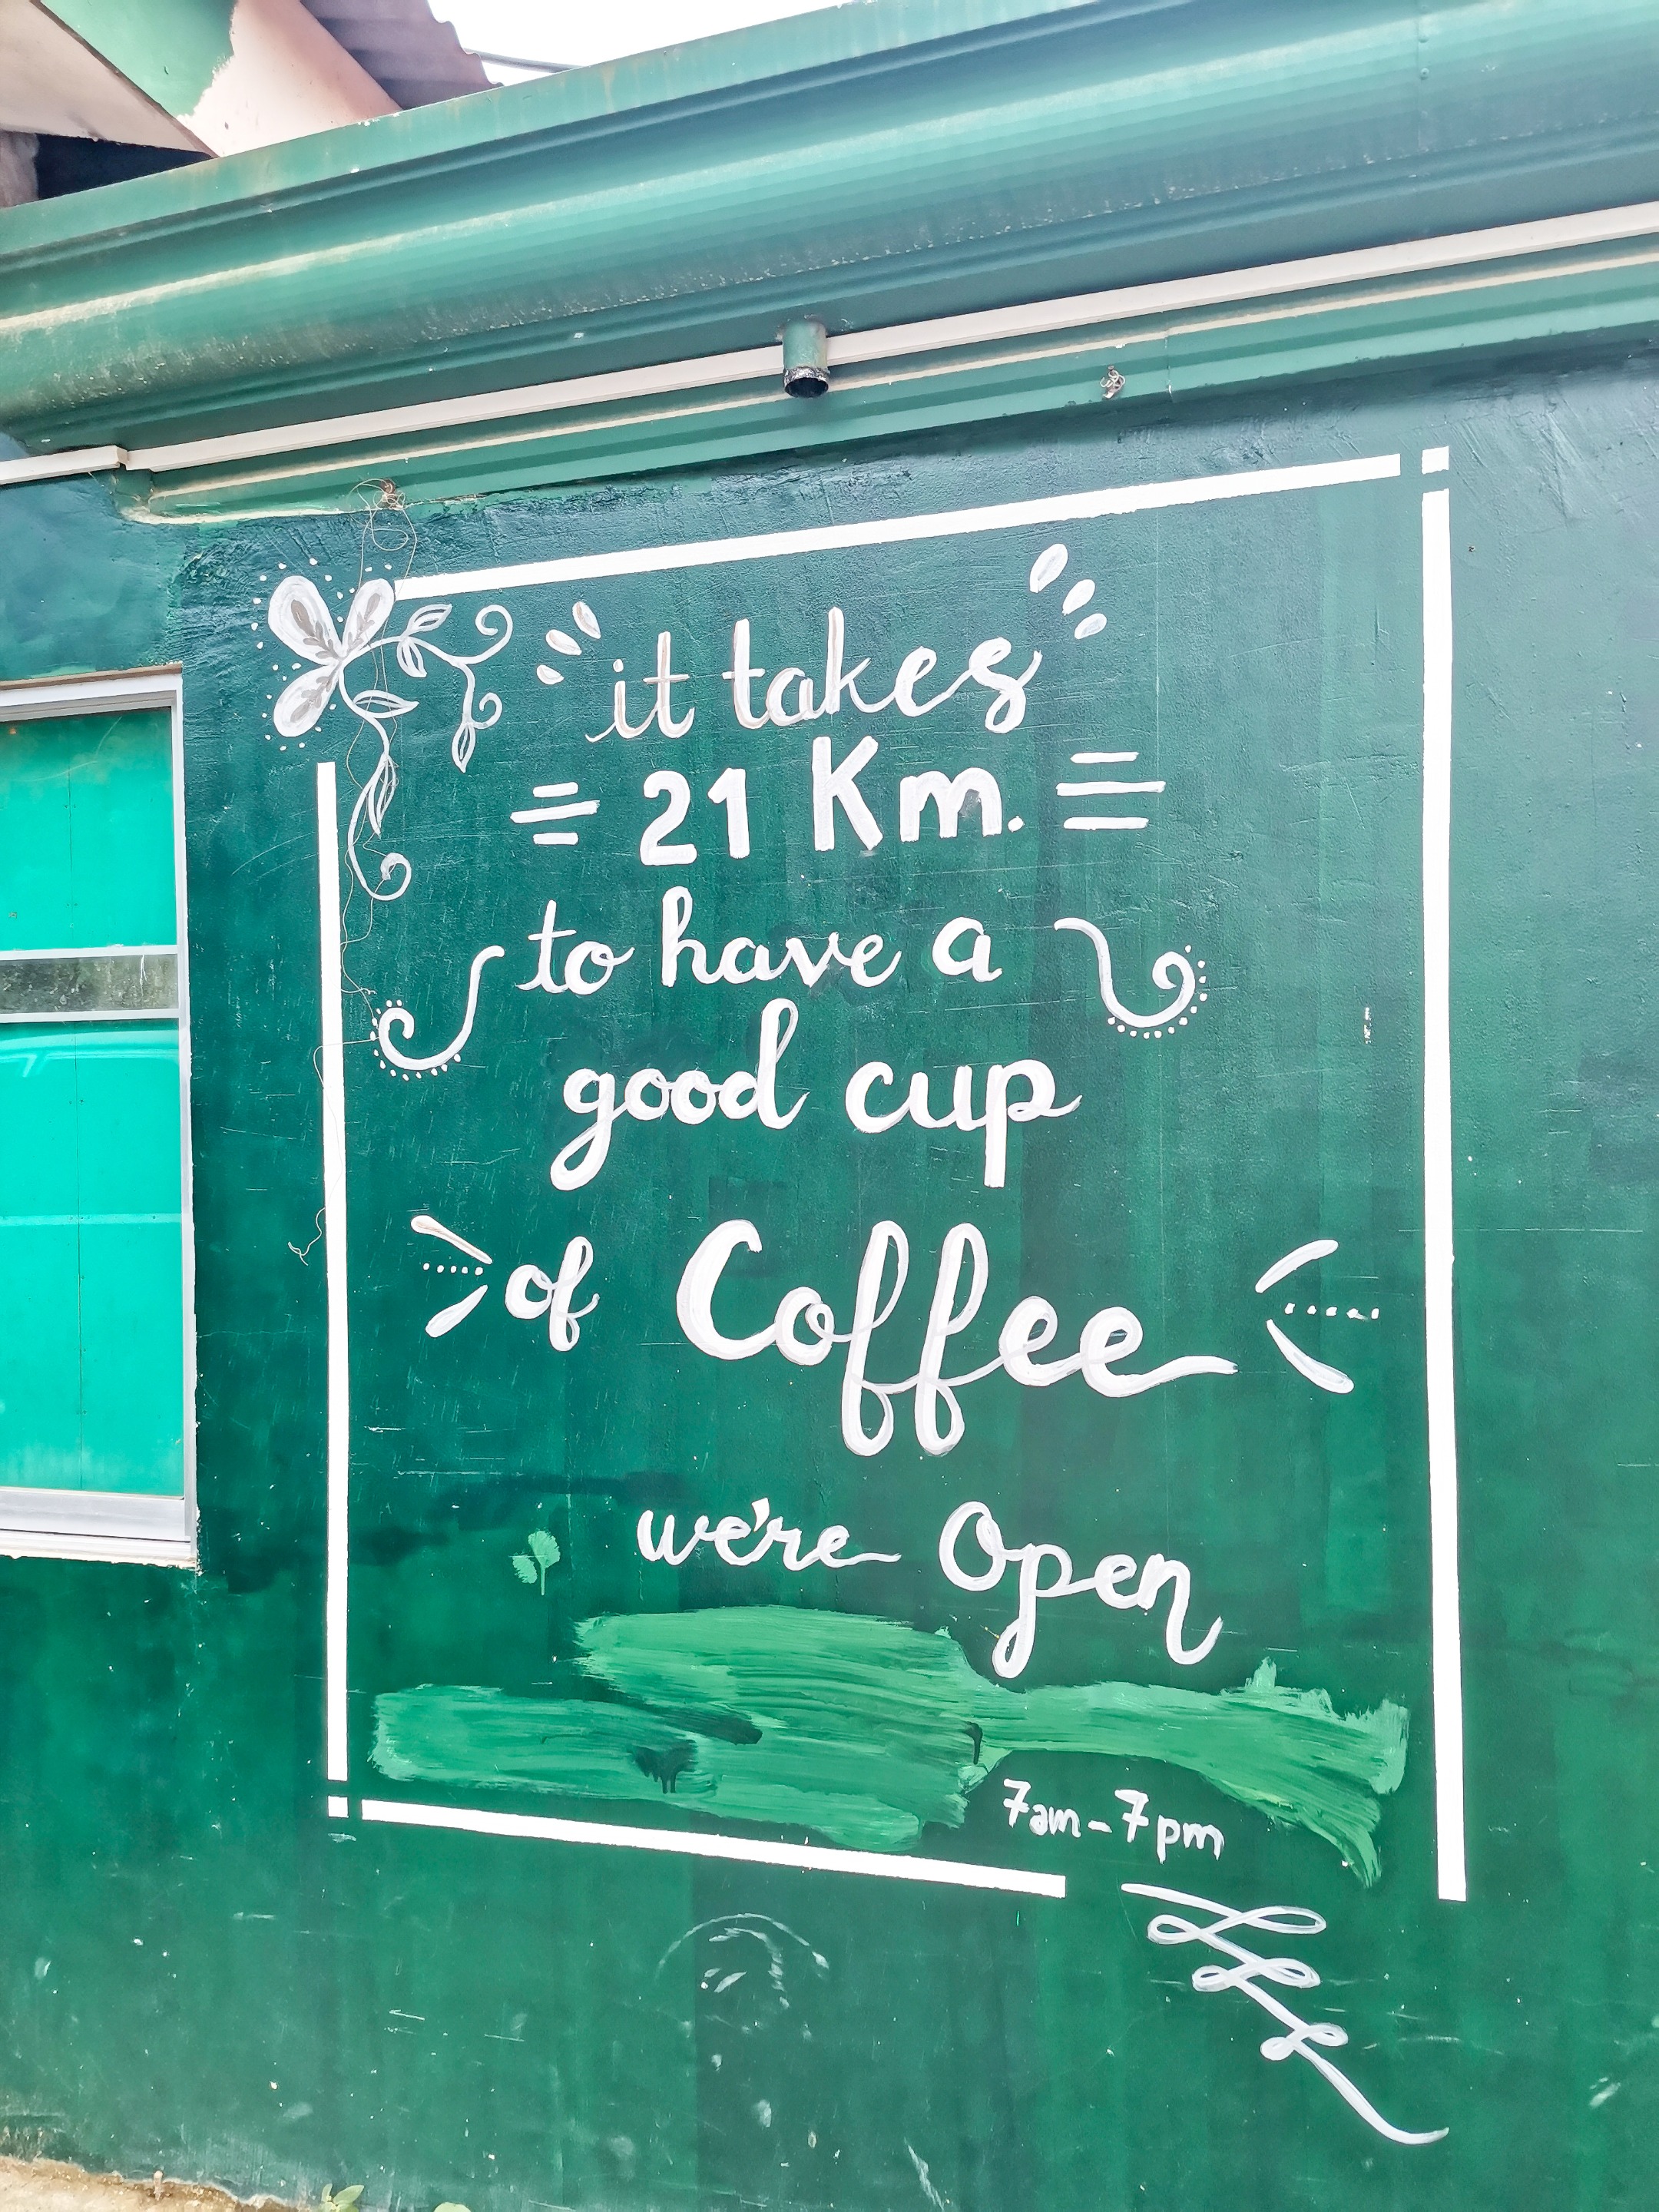 it takes
21 Km.
to have a
good cup
of Coffee
we're Open
7am - 7pm